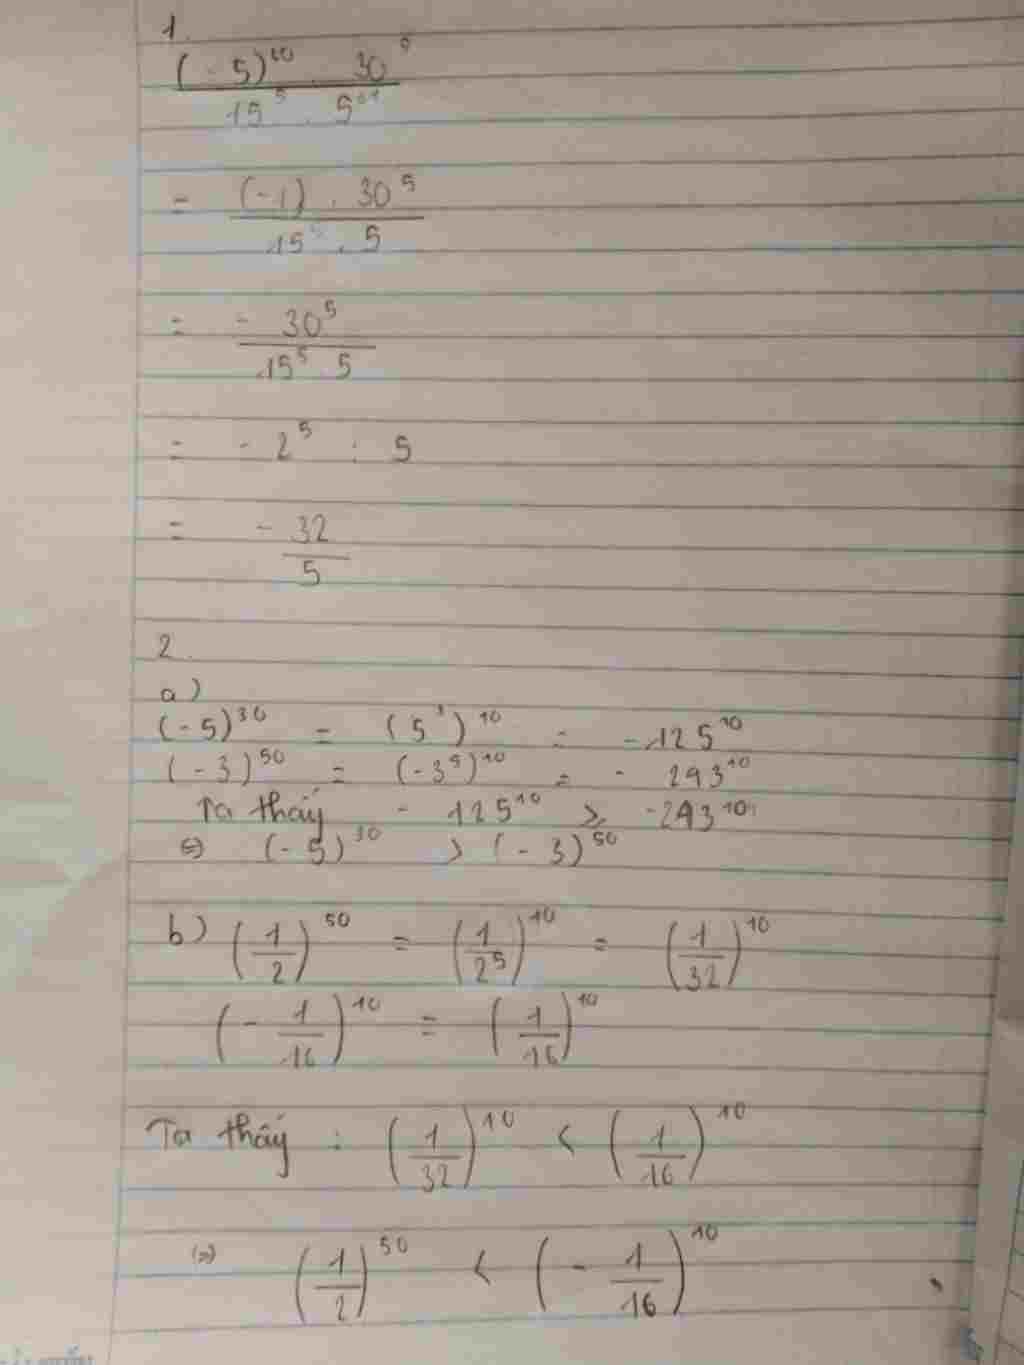 1.
(-5)^60 . 30^5 / 15^5 . 5^61
= (-1) . 30^5 / 15^5 . 5
= - 30^5 / 15^5 . 5
= - 2^5 : 5
= - 32 / 5
2.
a)
(-5)^30 = (5^3)^10 = -125^10
(-3)^50 = (-3^5)^10 = - 293^10
Ta thấy - 125^10 > -293^10
⇔ (-5)^30 > (-3)^50
b) (1/2)^50 = (1/2^5)^10 = (1/32)^10
(- 1/16)^10 = (1/16)^10
Ta thấy : (1/32)^10 < (1/16)^10
(=) (1/2)^50 < (- 1/16)^10